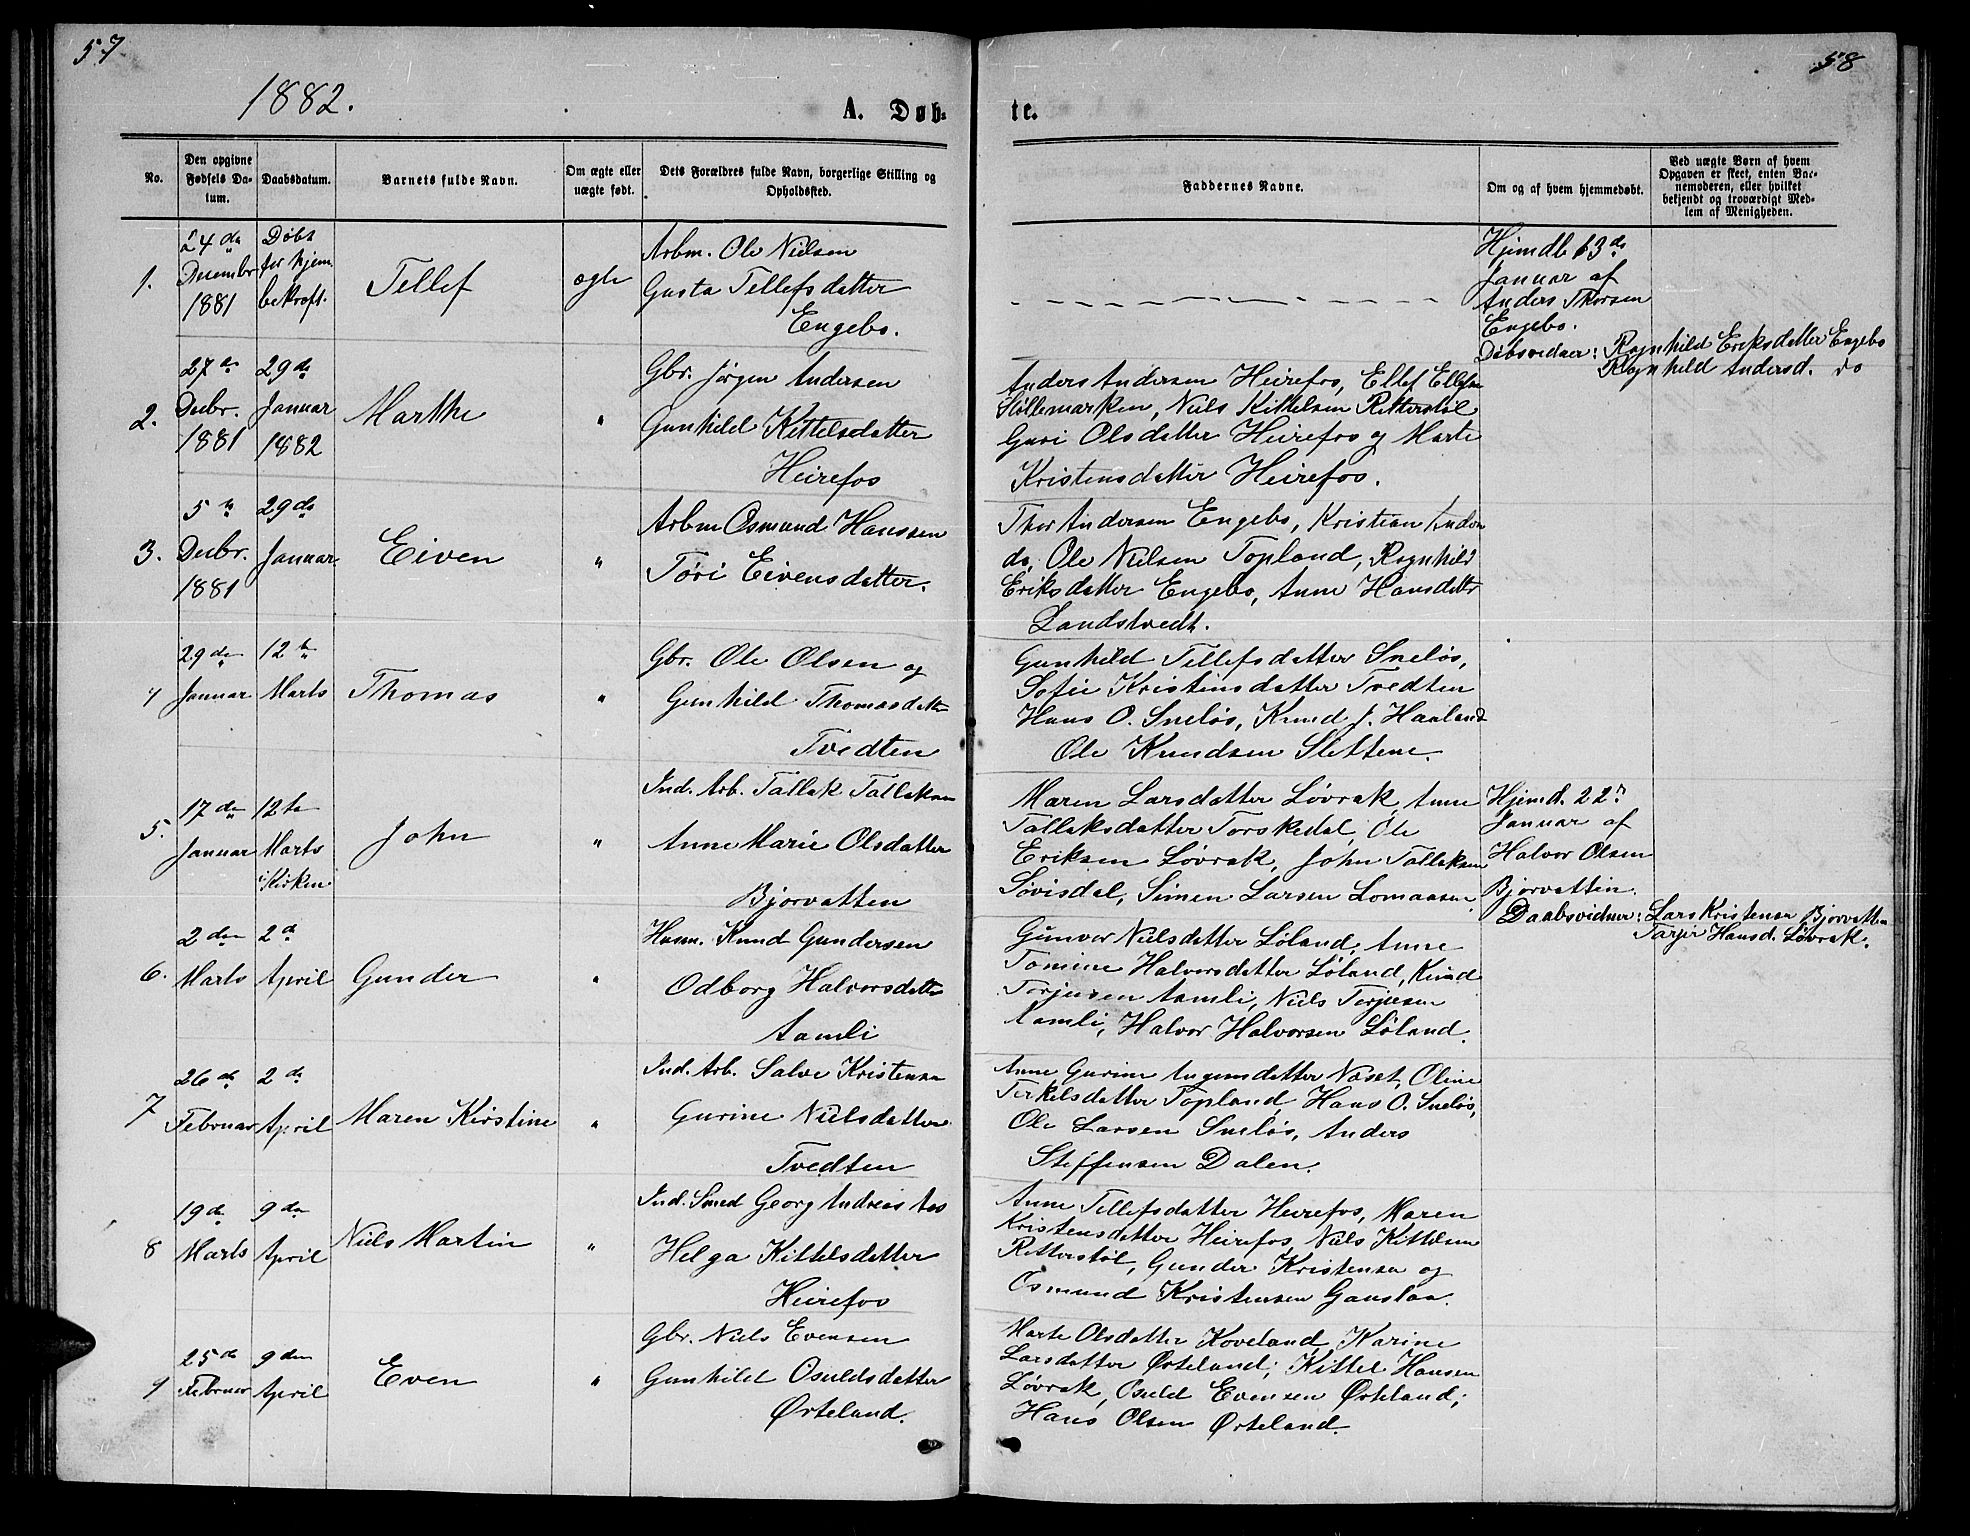 57
58
1882.
A. Døb-
te.
No.
Den opgivne Fødsels Da-
tum.
Daabsdatum.
Barnets fulde Navn.
Om ægte eller
uægte født.
Dets Forældres fulde Navn, borgerlige Stilling og
Opholdssted.
Faddernes Navne.
Om og af hvem hjemmedøbt.
Ved uægte Børn af hvem
Opgaven er skeet, enten Bar-
nemoderen, eller hvilket
bekjendt og troværdigt Med-
lem af Menigheden.
1.
24de
Decembr
1881
Døbt
før hjem.
bekræft.
Tellef
ægte
Arbm. Ole Nielsen
Gusta Tellefsdatter
Engebo.
Hjemdb. 13de
Januar af
Anders Thorsen
Engebo.
Døbsvidner: Ragnhild Eriksdatter Engebo
Ragnhild Andersd. do
2.
27de
Decbr.
1881
29de
Januar
1882
Marthe
"
Gbr. Jørgen Andersen
Gunhild Kittelsdatter
Heirefos
Anders Andersen Heirefos, Ellef Ellefsen
Støllemarken, Niels Kittelsen Ritterstøl
Guri Olsdatter Heirefos og Marte
Kristensdatter Heirefos.
3.
5te
Decbr.
1881
29de
Januar
Eiven
"
Arbm Osmund Hanssen
Tøri Eivensdatter.
Thor Andersen Engebo, Kristian Anders
do, Ole Nielsen Topland, Ragnhild
Eriksdatter Engebo, Anne Hansdatter
Landstvedt.
4
29de
Januar
12te
Marts
Thomas
"
Gbr. Ole Olsen og
Gunhild Thomasdatter
Tvedten
Gunhild Tellefsdatter Sneløs,
Sofie Kristensdatter Tvedten
Hans O. Sneløs, Knud J. Haaland
Ole Knudsen Slettene.
5.
17de
Januar
12te
Marts
i Kirken
John
"
Ind. Arb. Tallak Tallaksen
Anne Marie Olsdatter
Bjorvatten
Maren Larsdatter Løvrak, Anne
Tallaksdatter Torskedal, Ole
Eriksen Løvrak, John Tallaksen
Søvisdal, Simen Larsen Lomaasen
Hjemd. 22
Januar af
Halvor Olsen
Bjorvatten.
Daabsvidner: Lars Kristensen Bjorvatten
Tarjer Hansd. Løvrak.
6.
2den
Marts
2d
April
Gunder
"
Husm. Knud Gundersen
Odborg Halvorsdatter
Aamli
Gunvor Nielsdatter Løland, Anne
Tomine Halvorsdatter Løland, Knud
Terjesen Aamli, Niels Terjesen
Aamli, Halvor Halvorsen Løland.
7
26de
Februar
2de
April
Maren Kirstine
"
Ind. Arb. Salve Kristensen
Gurine Nielsdatter
Tvedten
Anne Gurine Augensdatter Næset, Oline
Terkelsdatter Topland, Hans O. Sneløs,
Ole Larsen Sneløs, Anders
Steffensen Dalen.
8
19de
Marts
9de
April
Niels Martin
"
Ind. Smed Georg Andreas Aas
Helga Kittelsdatter
Heirefos
Anne Tellefsdatter Heirefos, Maren
Kristensdatter Heirefos, Niels Kittelsen
Ritterstøl, Gunder Kristensen og
Osmund Kristensen Gauslaa.
9
25de
Februar
9de
April
Even
"
Gbr. Niels Evensen
Gunhild Osuldsdatter
Ørteland.
Marte Olsdatter Koveland, Karine
Larsdatter Ørteland; Kittel Hansen
Løvrak, Osuld Evensen Ørteland;
Hans Olsen Ørteland.